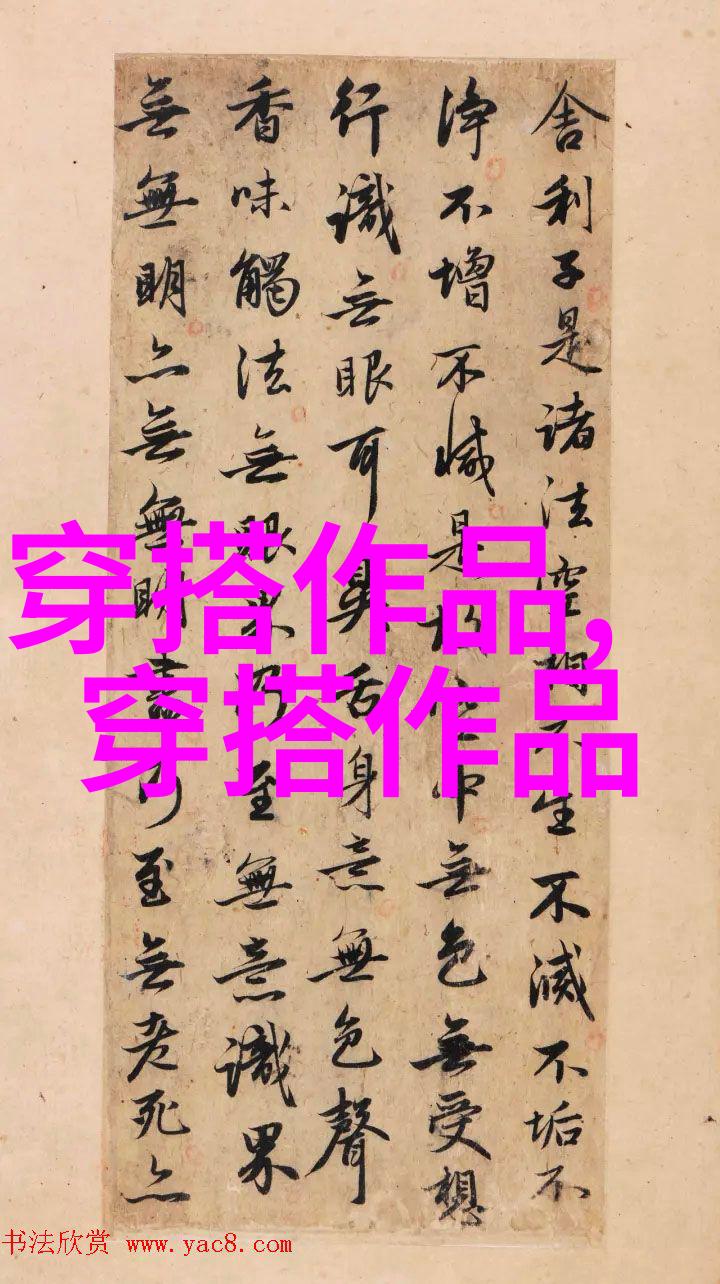 舍利子是諸法空相不生不滅不垢不
淨不增不減是故空中無色無受想
行識無眼耳鼻舌身意無色聲
香味觸法無眼界乃至無意識界
無無明亦無無明盡乃至無老死亦
穿搭作品,
穿搭作品
书法欣赏 www.yac8.com